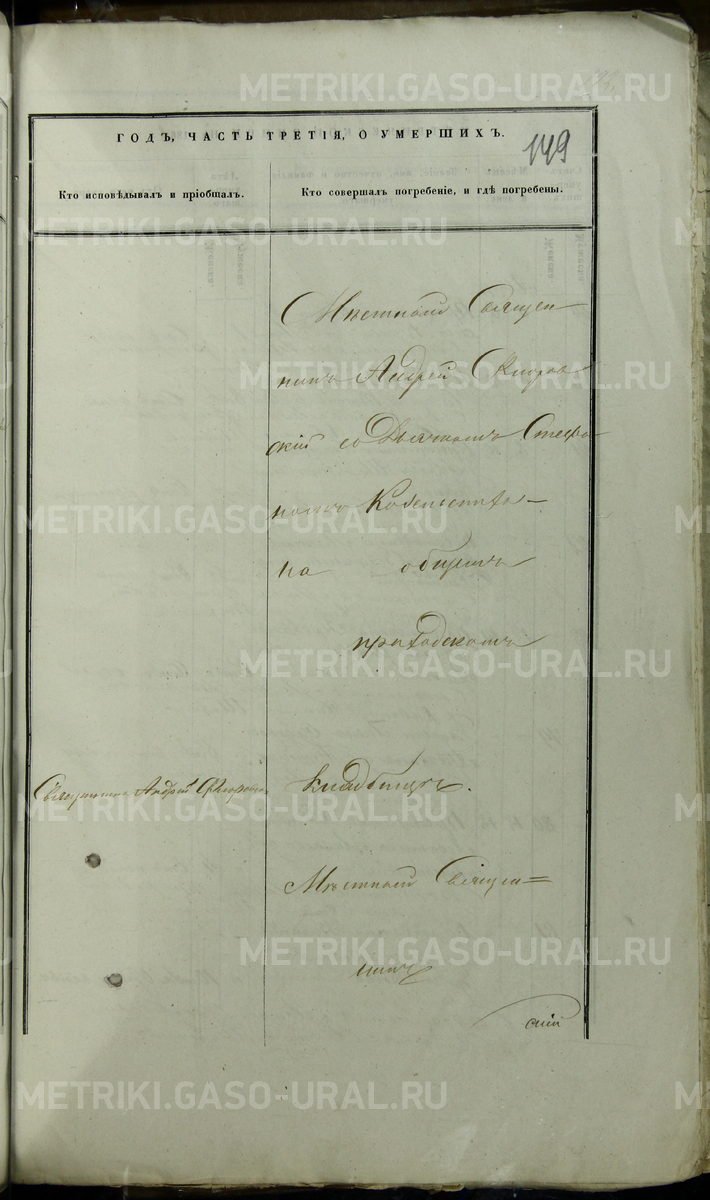 149
ГОДЪ, ЧАСТЬ ТРЕТІЯ, О УМЕРШИХЪ.
Кто исповѣдывалъ и пріобщалъ.
Кто совершалъ погребеніе, и гдѣ погребены.
Мѣстный Священ
никъ Андрей Флоров
скій со Дьячкомъ Стефа
номъ
на общемъ
приходскомъ
Священникъ Андрей Флоровскій
кладбищѣ.
Мѣстный Священ=
никъ
скій
METRIKI.GASO-URAL.RU